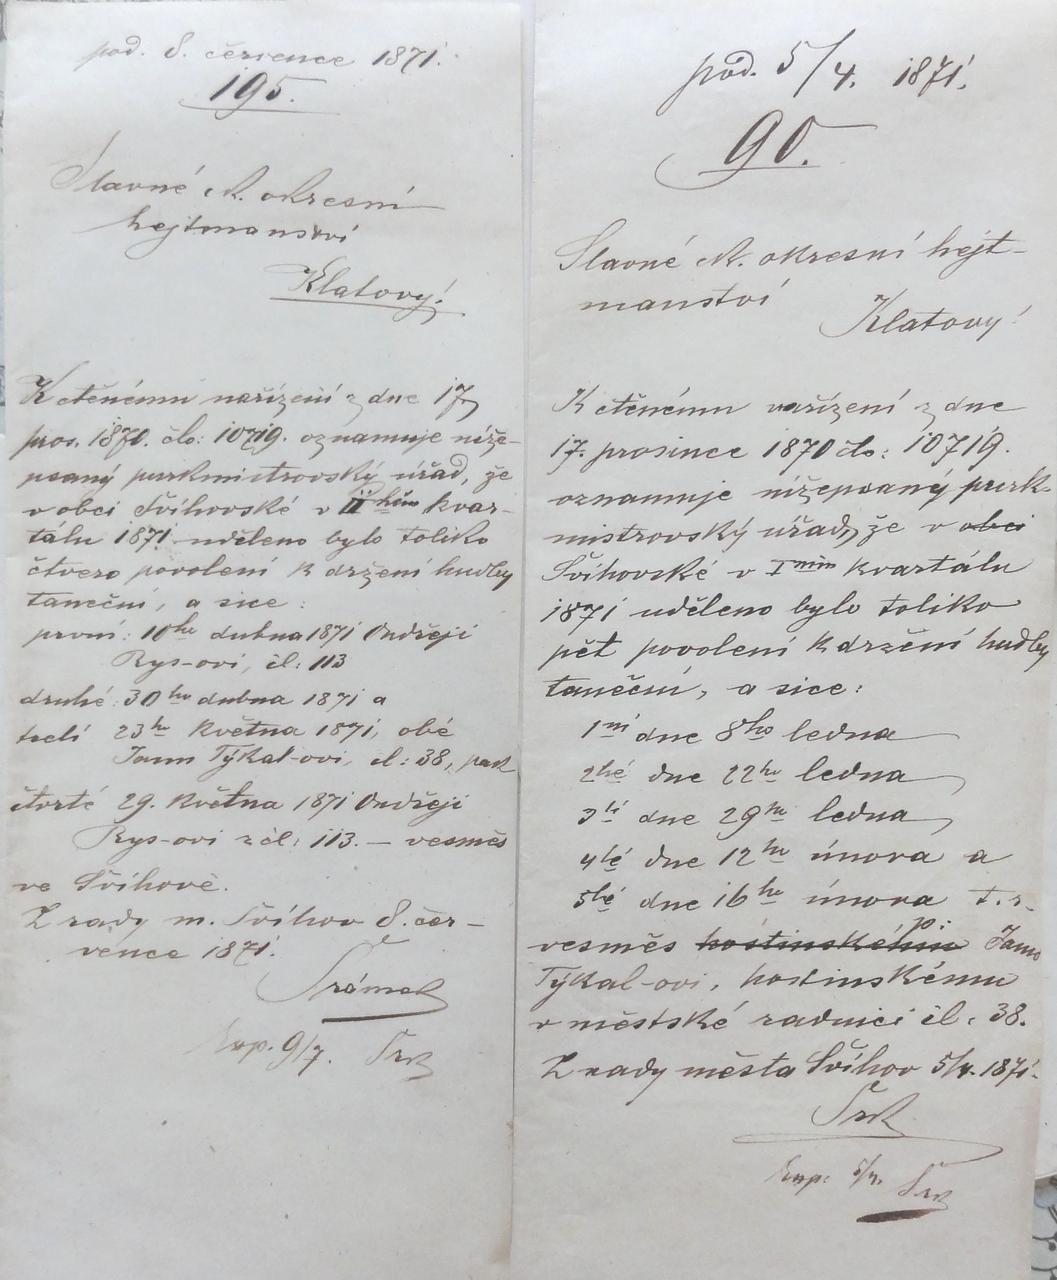 pod. 8. července 1871.
195.
Slavné c. k. okresní
hejtmanství
Klatovy!
K ctěnému nařízení z dne 17.
pros. 1870. člo: 10719. oznamuje níže-
psaný purkmistrovský úřad, že
v obci Švihovské v II hém kvar-
tálu 1871 uděleno bylo toliko
čtvero povolení k držení hudby
taneční, a sice:
první: 10ho dubna 1871 Ondřeji
Rys-ovi, čl: 113
druhé: 30ho dubna 1871 a
třetí 23ho května 1871, obé
Janu Týkal-ovi, čl: 38, pak
čtvrté 29. května 1871 Ondřeji
Rys-ovi z čl: 113. – vesměs
ve Švihově.
Z rady m. Švihov 8. čer-
vence 1871.
Šrámek
Exp. 9/7. Šrk
pod. 5/4. 1871.
90.
Slavné c. k. okresní hejt-
manství
Klatovy!
K ctěnému nařízení z dne
17. prosince 1870 člo: 10719.
oznamuje nížepsaný purk-
mistrovský úřad, že v obci
Švihovské v I ním kvartálu
1871 uděleno bylo toliko
pět povolení k držení hudby
taneční, a sice:
1ní dne 8ho ledna
2hé dne 22ho ledna
3tí dne 29ho ledna
4té dne 12ho února a
5té dne 16ho února t. r.
vesměs hostinskému p: Janu
Týkal-ovi, hostinskému
v městské radnici čl: 38.
Z rady města Švihov 5/4. 1871.
Šrk
Exp: 5/4. Šrk